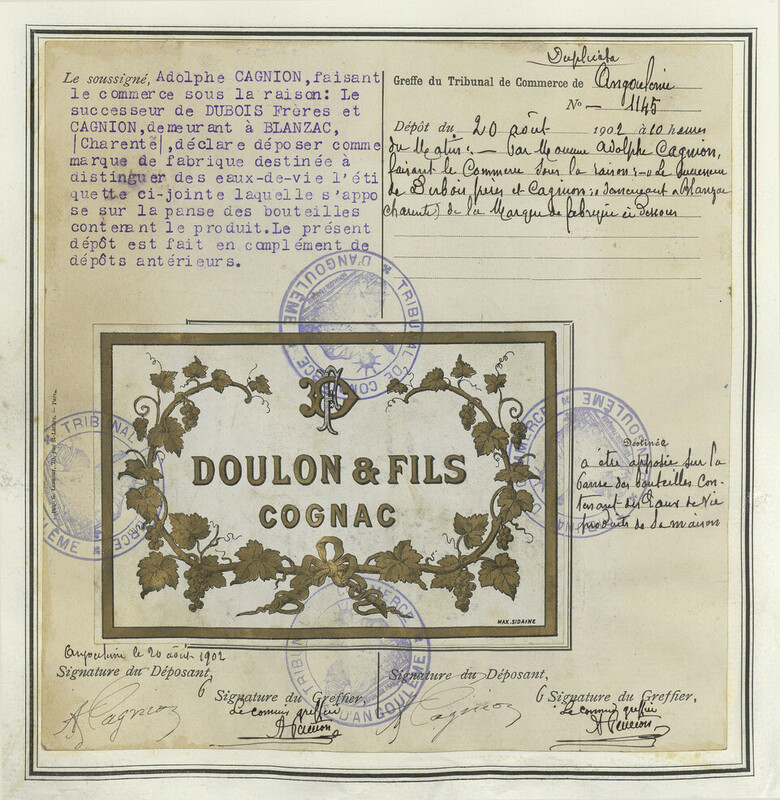 Duplicata
Le soussigné, Adolphe CAGNION, faisant
le commerce sous la raison: Le
successeur de DUBOIS Frères et
CAGNION, demeurant à BLANZAC,
|Charente|, déclare déposer comme
marque de fabrique destinée à
distinguer des eaux-de-vie l'éti
quette ci-jointe laquelle s'appo
se sur la panse des bouteilles
contenant le produit. Le présent
dépôt est fait en complément de
dépôts antérieurs.
Greffe du Tribunal de Commerce de Angoulême
No — 1145
Dépôt du 20 août 1902 à 10 heures
du Matin :— Par Monsieur Adolphe Cagnion,
faisant le Commerce sous la raison :—" Le Successeur
de Dubois frères et Cagnion ;" demeurant à Blanzac
Charente) de la Marque de fabrique ci dessous
TRIBUNAL DE COMMERCE D'ANGOULÊME
DOULON & FILS
COGNAC
MAX.SIDAINE
TRIBUNAL DE COMMERCE D'ANGOULÊME
TRIBUNAL DE COMMERCE D'ANGOULÊME
Destinée
à être apposée sur la
panse des bouteilles con-
tenant des Eaux de Vie
produits de sa maison
TRIBUNAL DE COMMERCE D'ANGOULÊME
Angoulême le 20 août 1902
Signature du Déposant,
A Cagnion
Signature du Greffier,
Le commis greffier
Signature du Déposant,
A Cagnion
Signature du Greffier,
Le commis greffier